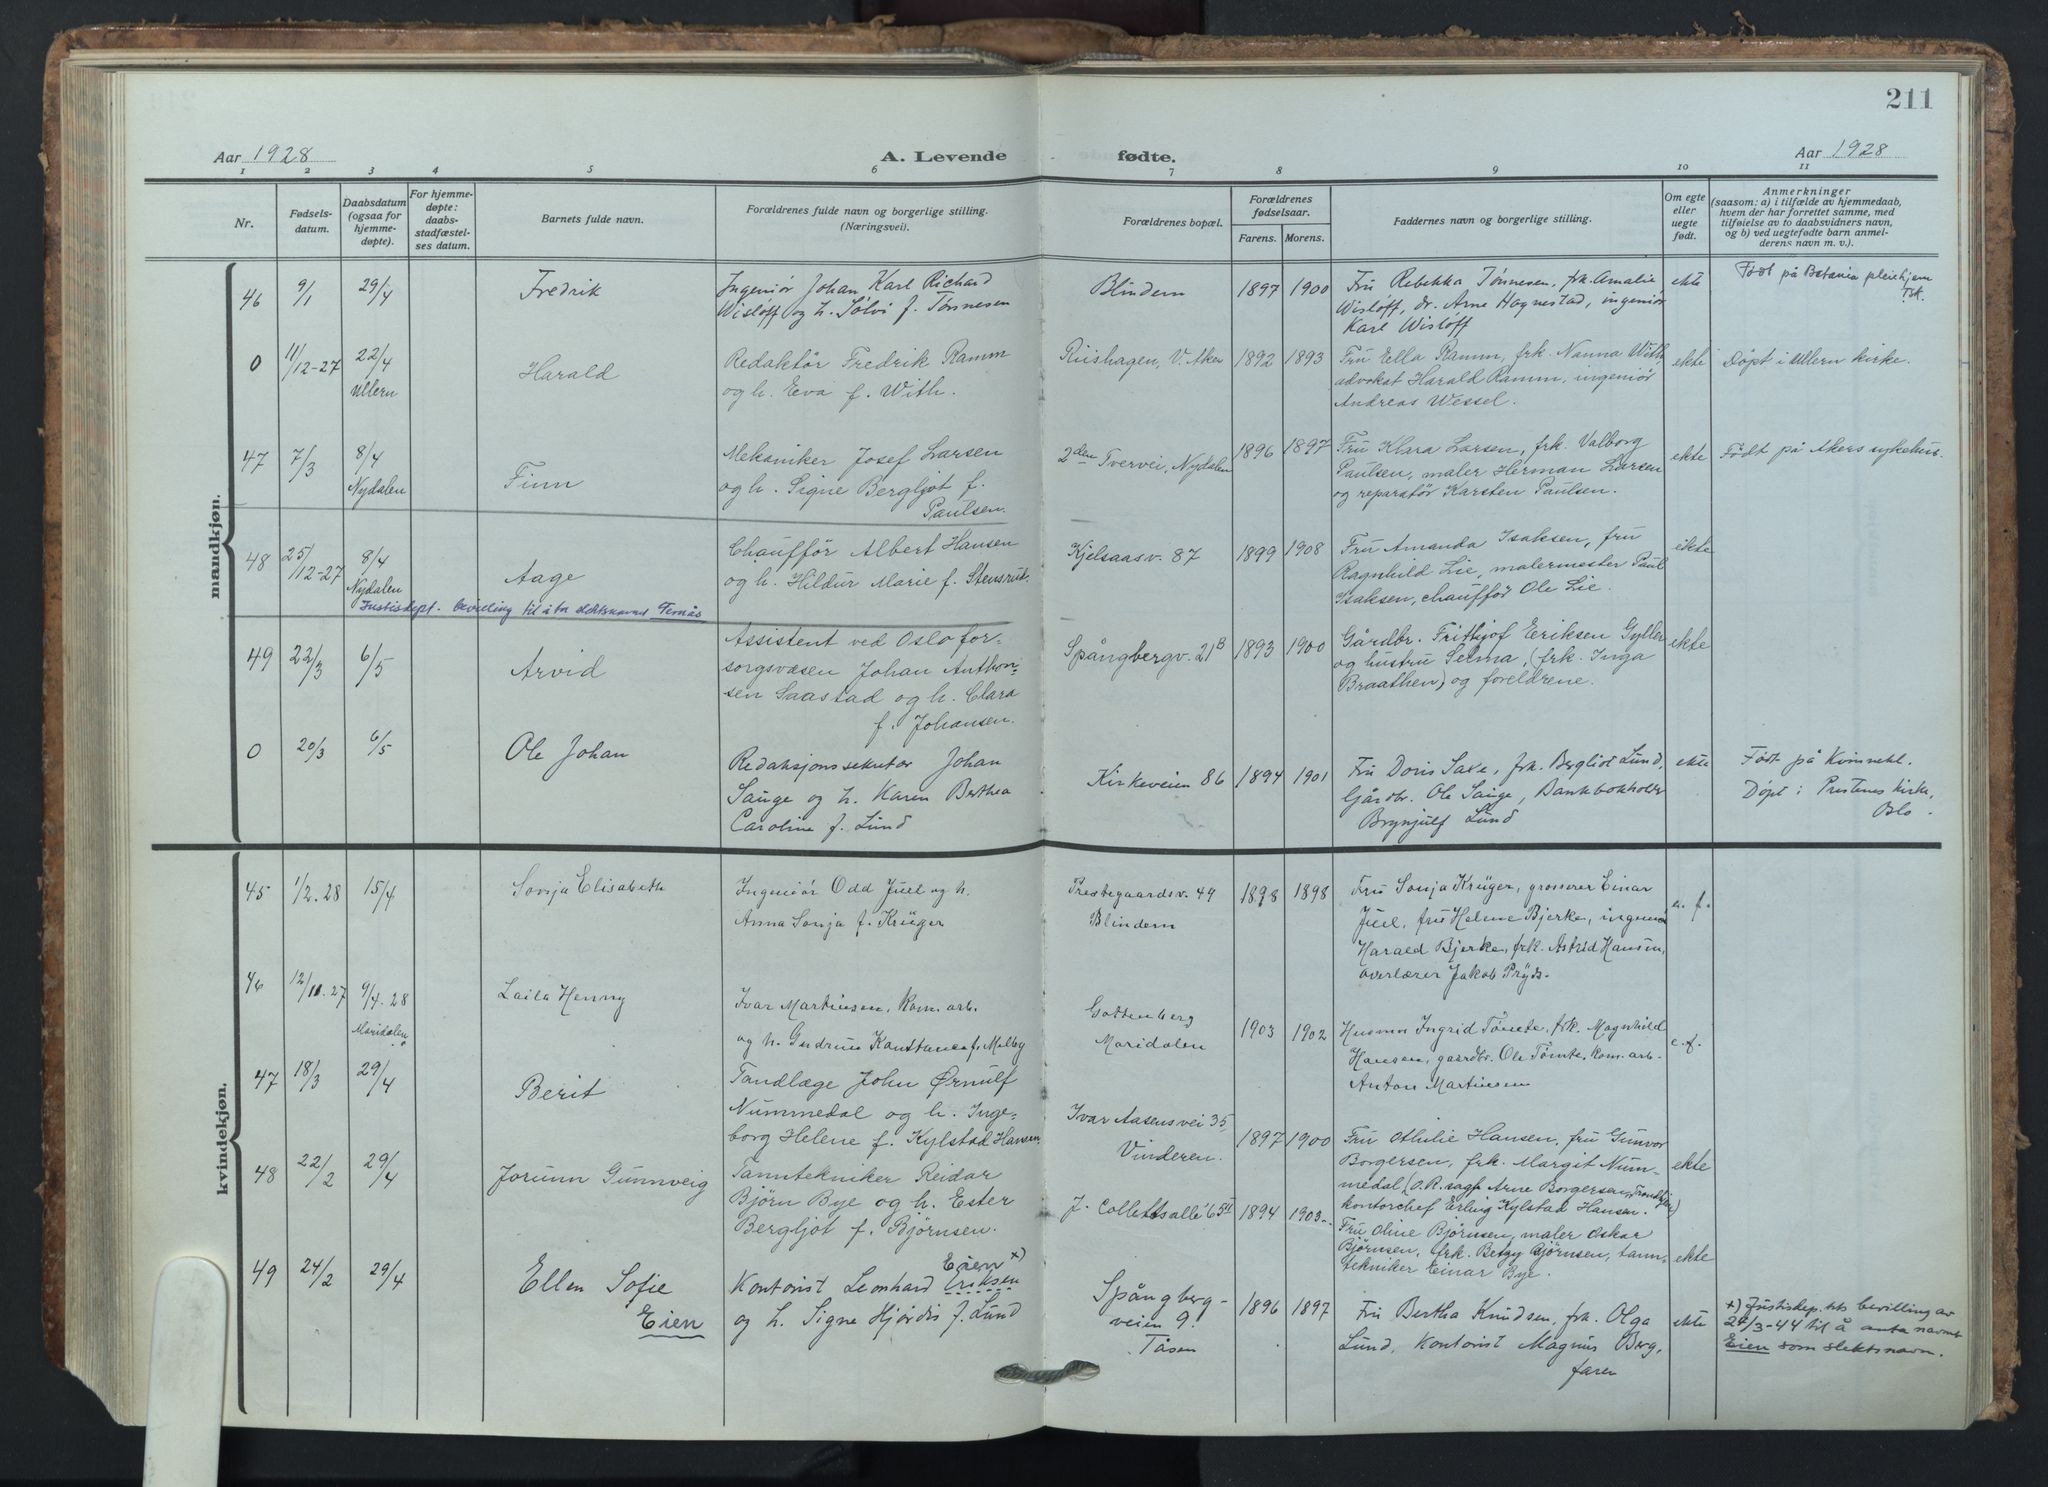 211
Aar 1928
A. Levende fødte.
Aar 1928
1 2 3 4 5 6 7 8 9 10 11
Nr.
Fødsels-
datum.
Daabsdatum
(ogsaa for
hjemme-
døpte).
For hjemme-
døpte:
daabs-
stadfæstel-
ses datum.
Barnets fulde navn.
Forældrenes fulde navn og borgerlige stilling.
(Næringsvei).
Forældrenes bopæl.
Forældrenes
fødselsaar.
Farens. Morens.
Faddernes navn og borgerlige stilling.
Om egte
eller
uegte
født.
Anmerkninger
(saasom: a) i tilfælde av hjemmedaab,
hvem der har forrettet samme, med
tilføielse av to daabsvidners navn,
og b) ved uegtefødte barn anmel-
derens navn m. v.).
mandkjøn.
46
9/1
29/4
Fredrik
Ingeniør Johan Karl Richard
Wisløff og h. Sølvi f. Tønnesen
Blindern
1897
1900
Fru Rebekka Tønnesen, frk. Amalie
Wisløff, dr. Arne Hognestad, ingeniør
Karl Wisløff
ekte
Født på Betania pleiehjem
Tsk.
0
11/12-27
22/4
Ullern
Harald
Redaktør Fredrik Ramm
og h. Eva f. With.
Riishagen, V. Aker
1892
1893
Fru Ella Ramm, frk. Nanna With,
advokat Harald Ramm, ingeniør
Andreas Wessel.
ekte
Døpt i Ullern kirke.
47
7/3
8/4
Nydalen
Finn
Mekaniker Josef Larsen
og h. Signe Bergljot f.
Paulsen.
2den Tvervei, Nydalen
1896
1897
Fru Klara Larsen, frk. Valborg
Paulsen, maler Herman Larsen
og reparatør Karsten Paulsen.
ekte
Født på Akers sykehus.
48
25/12-27
8/4
Nydalen
Aage
Chauffør Albert Hansen
og h. Hildur Marie f. Stensrud.
Justisdept. bevilling til å ta slektsnavnet Ternås
Kjelsaasv. 87
1899
1908
Fru Amanda Isaksen, fru
Ragnhild Lie, malermester Paul
Isaksen, chauffør Ole Lie.
ekte
49
22/3
6/5
Arvid
Assistent ved Oslo for-
sorgsvæsen Johan Anthon-
sen Saastad og h. Clara
f. Johansen.
Spångbergv. 21B
1893
1900
Gårdbr. Frithjof Eriksen Gyller
og hustru Selma, (frk. Inga
Braathen) og foreldrene.
ekte
0
20/3
6/5
Ole Johan
Redaksjonssekretær Johan
Sauge og h. Karen Berthea
Caroline f. Lund
Kirkeveien 86
1894
1901
Fru Doris Saxe, frk. Bergliot Lund,
Gårdbr. Ole Sauge, Bankbokholder
Brynjulf Lund
ekte
Født på Kvinnekl.
Døpt i Prestenes kirke,
Oslo.
kvindekjøn.
45
1/2. 28
15/4
Sonja Elisabeth
Ingeniør Odd Juel og h.
Anna Sonja f. Krüger
Prestegaardsv. 44
Blindern
1898
1898
Fru Sonja Krüger, grosserer Einar
Juel, fru Helene Bjerke, ingeniør
Harald Bjerke, frk. Astrid Hansen,
overlærer Jakob Prÿds.
e. f.
46
12/11.27
9/4. 28
Maridalen
Laila Henny
Ivar Martinsen, kom. arb.
og h. Gudrun f. Melby
Maridalen
1903
1902
Husmor Ingrid Tømte, frk. Magnhild
Hansen, gaardbr. Ole Tømte, kom. arb.
Anton Martinsen
e. f.
47
18/3
29/4
Berit
Tandlæge John Ørnulf
Nummedal og h. Inge-
borg Helene f. Kylstad Hansen
Ivar Aasens vei 35
Vinderen.
1897
1900
Fru Othilie Hansen, fru Gunvor
Borgersen, frk. Margit Num-
medal (O.R. sagf. Arne Borgersen, Trondhjem)
kontorchef Erling Kylstad Hansen.
ekte
48
22/2
29/4
Jorunn Gunnveig
Tanntekniker Reidar
Bjørn Bye og h. Ester
Bergljot f. Bjørnsen.
J. Colletts allé 65II
1894
1903
Fru Oline Bjørnsen, maler Oskar
Bjørnsen, frk. Betzy Bjørnsen, tann-
tekniker Einar Bye.
ekte
49
24/2
29/4
Ellen Sofie
Eien
Eien x)
Kontorist Leonhard Eriksen
og h. Signe Hjørdis f. Lund
Spångberg-
veien 9.
Tåsen
1896
1897
Fru Bertha Knudsen, frk. Olga
Lund, kontorist Magnus Berg,
faren
ekte
x) Justisdep.ts bevilling av
24/3-44 til å anta navnet
Eien som slektsnavn.